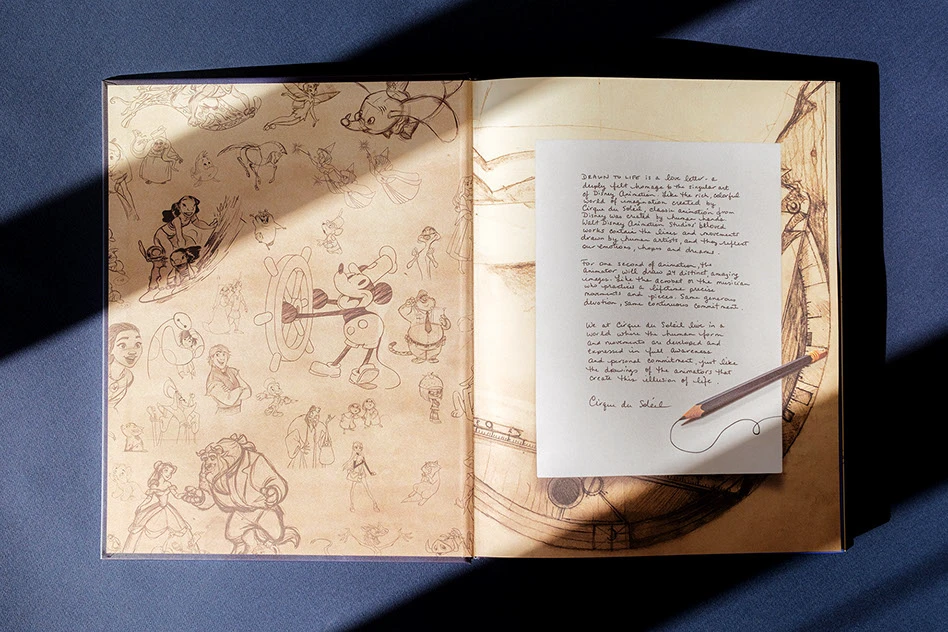 DRAWN TO LIFE is a love letter - a
deeply felt homage to the singular art
of Disney Animation. Like the rich, colorful
world of imagination created by
Cirque du Soleil, classic animation from
Disney was created by human hands.
Walt Disney Animation Studios' beloved
works contain the lines and movements
drawn by human artists, and they reflect
our emotions, hopes and dreams.
For one second of animation, the
animator will draw 24 distinct, amazing
images. Like the acrobat or the musician
who practice a lifetime precise
movements and pieces. Same generous
devotion, same continuous commitment.
We at Cirque du Soleil live in a
world where the human form
and movements are developed and
expressed in full awareness
and personal commitment, just like
the drawings of the animators that
create this illusion of life.
Cirque du Soleil